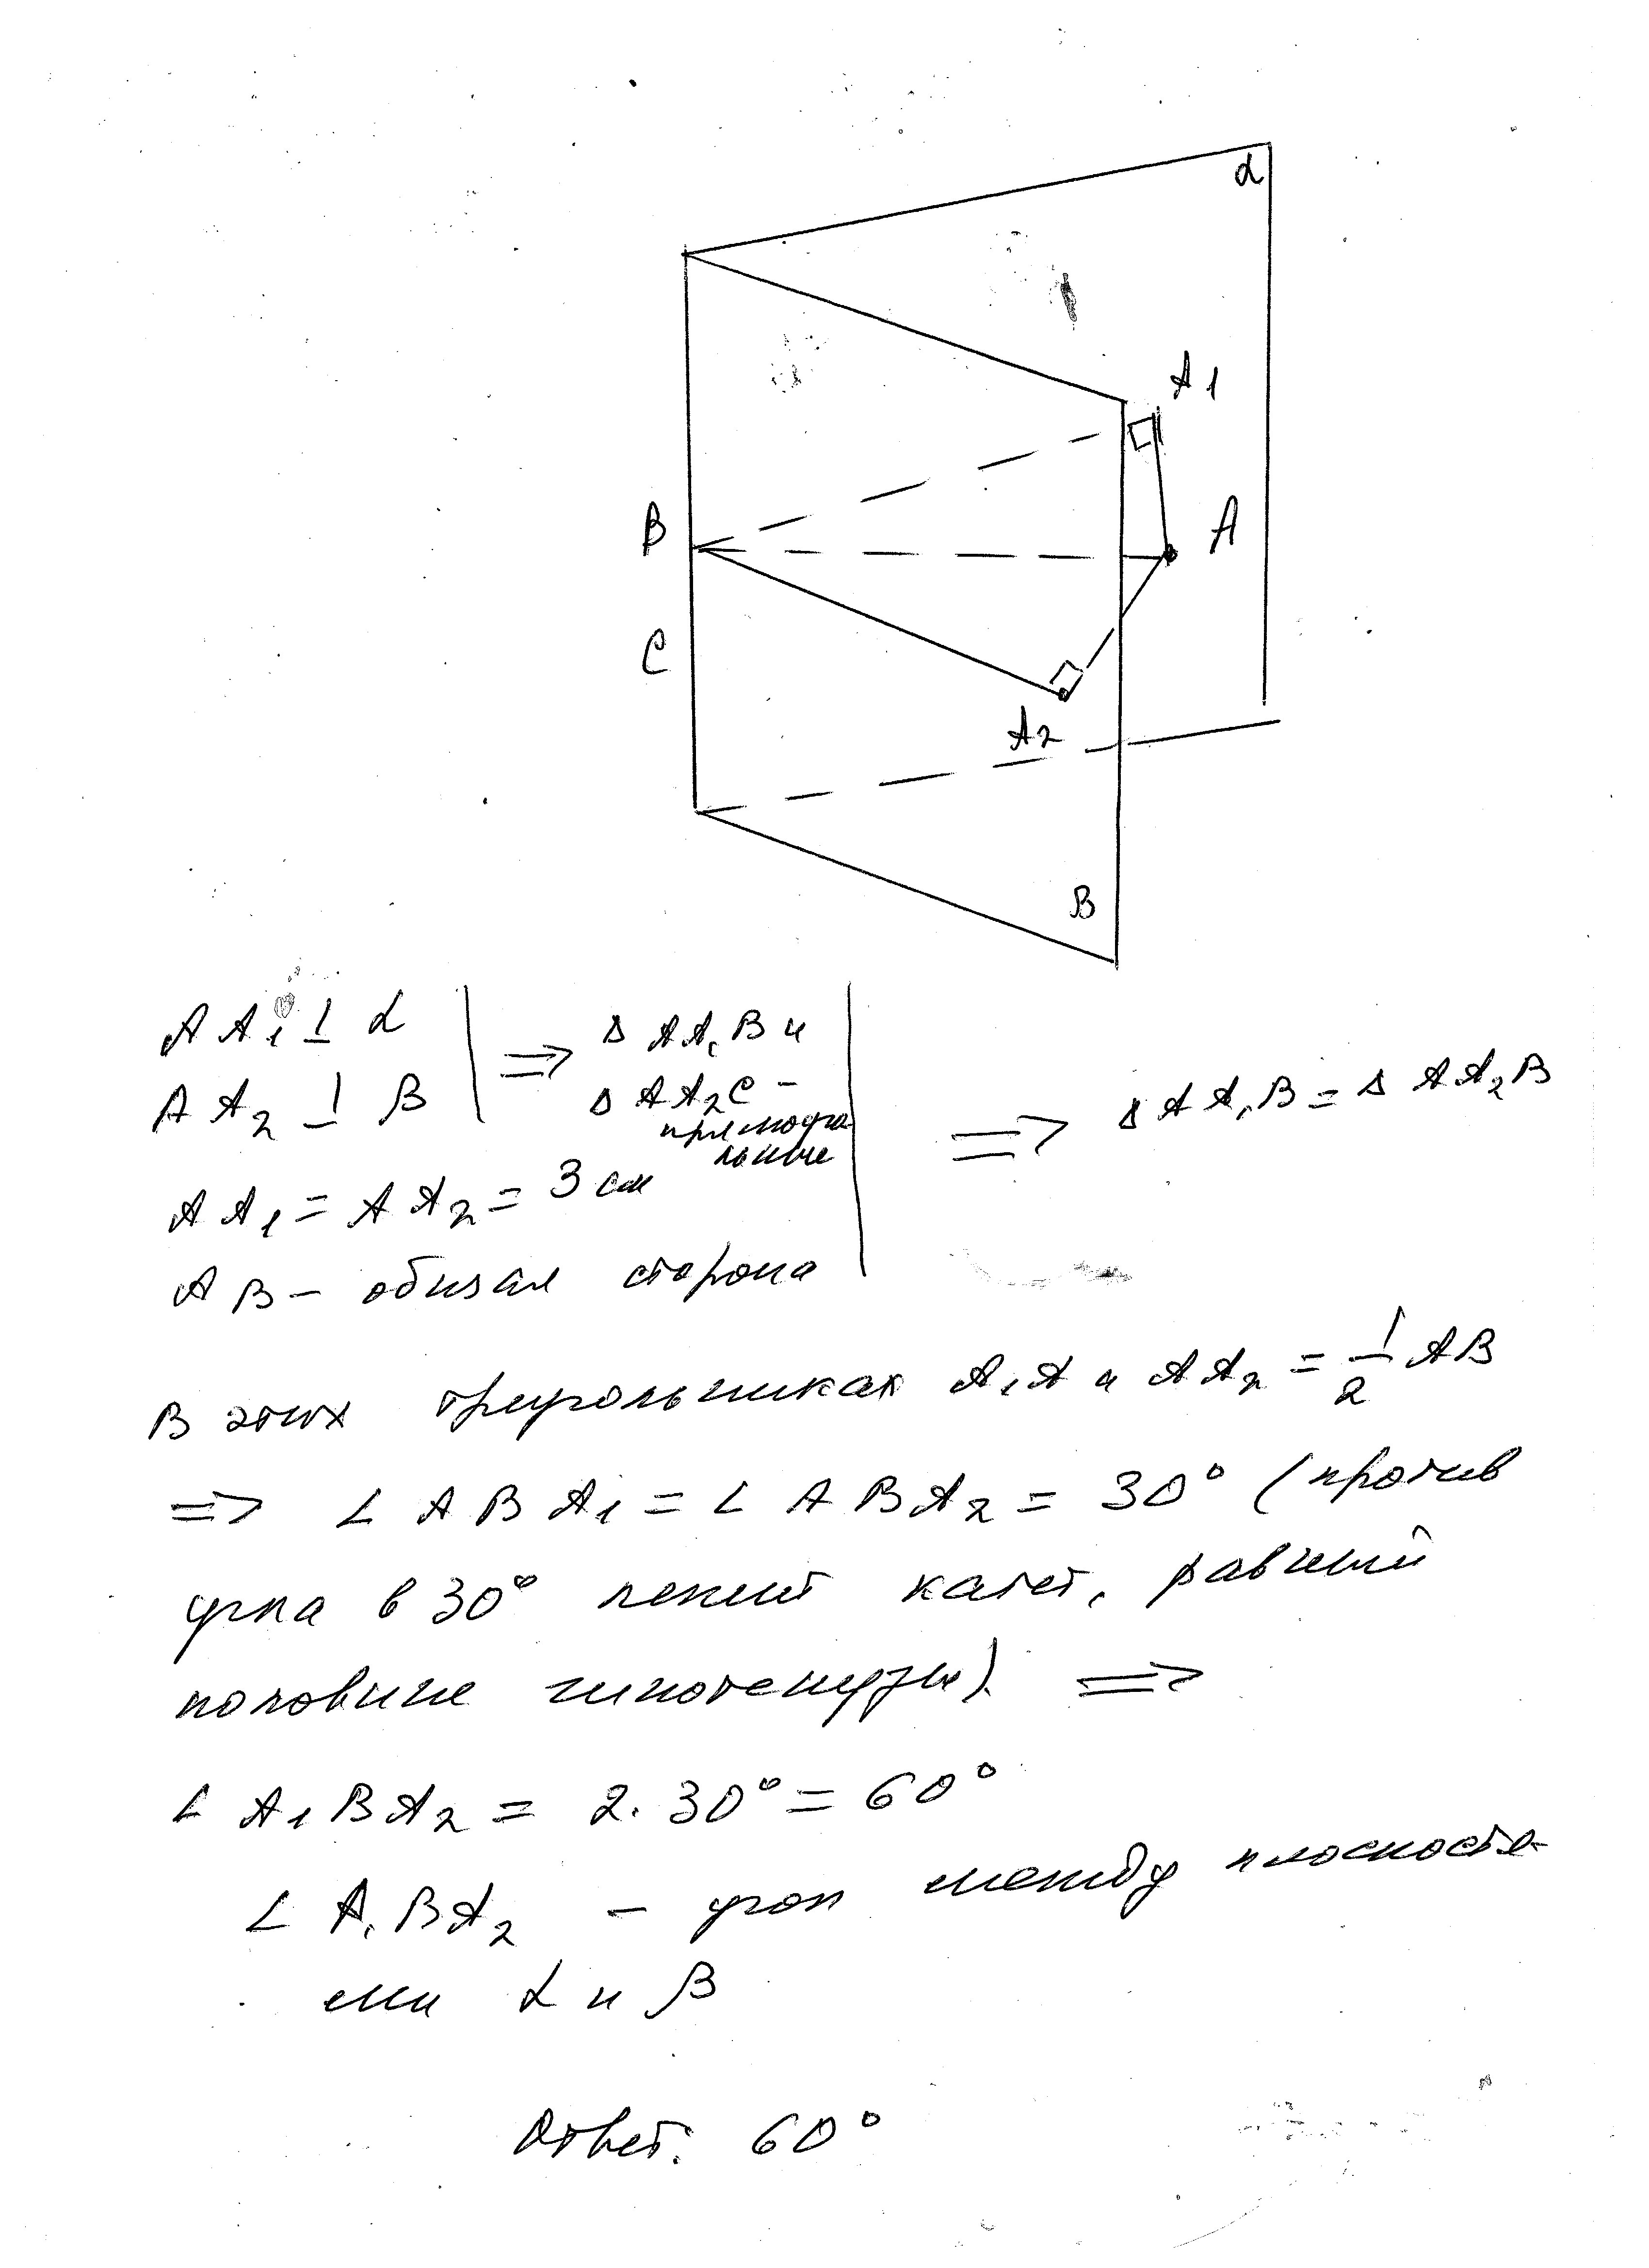 α
A1
B
A
C
A2
β
AA₁ ⊥ α
AA₂ ⊥ β
⇒ Δ AA₁B и
Δ AA₂C –
прямоуго
льные
⇒ Δ AA₁B = Δ AA₂B
AA₁ = AA₂ = 3 см
AB – общая сторона
В этих треугольниках A₁A и AA₂ = 1/2 AB
⇒ ∠ ABA₁ = ∠ ABA₂ = 30° (против
угла в 30° лежит катет, равный
половине гипотенузы). ⇒
∠ A₁BA₂ = 2·30° = 60°
∠ A₁BA₂ – угол между плоскостя-
ми α и β
Ответ: 60°